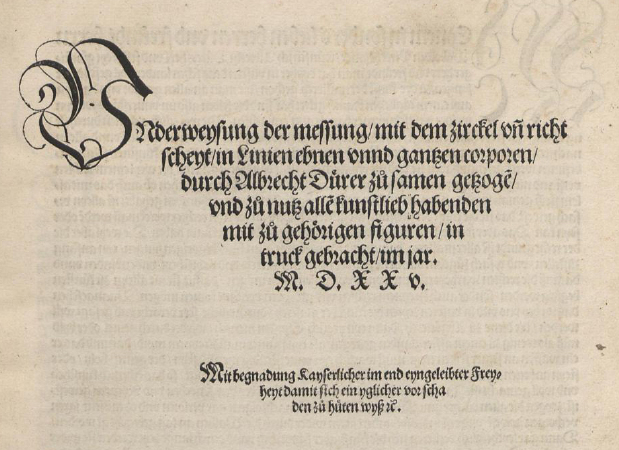 VNderweysung der messung/ mit dem zirckel uñ richt
scheyt/ in Linien ebnen unnd gantzen corporen/
durch Albrecht Dürer zů samen getzogẽ/
und zů nutz allẽ kunstlieb habenden
mit zů gehörigen figuren/ in
truck gebracht/ im jar.
M. D. X X v.
Mit begnadung Kayserlicher im end eyngeleibter Frey-
heyt damit sich ein yglicher vor scha
den zů hüten wyß ꝛc̃.